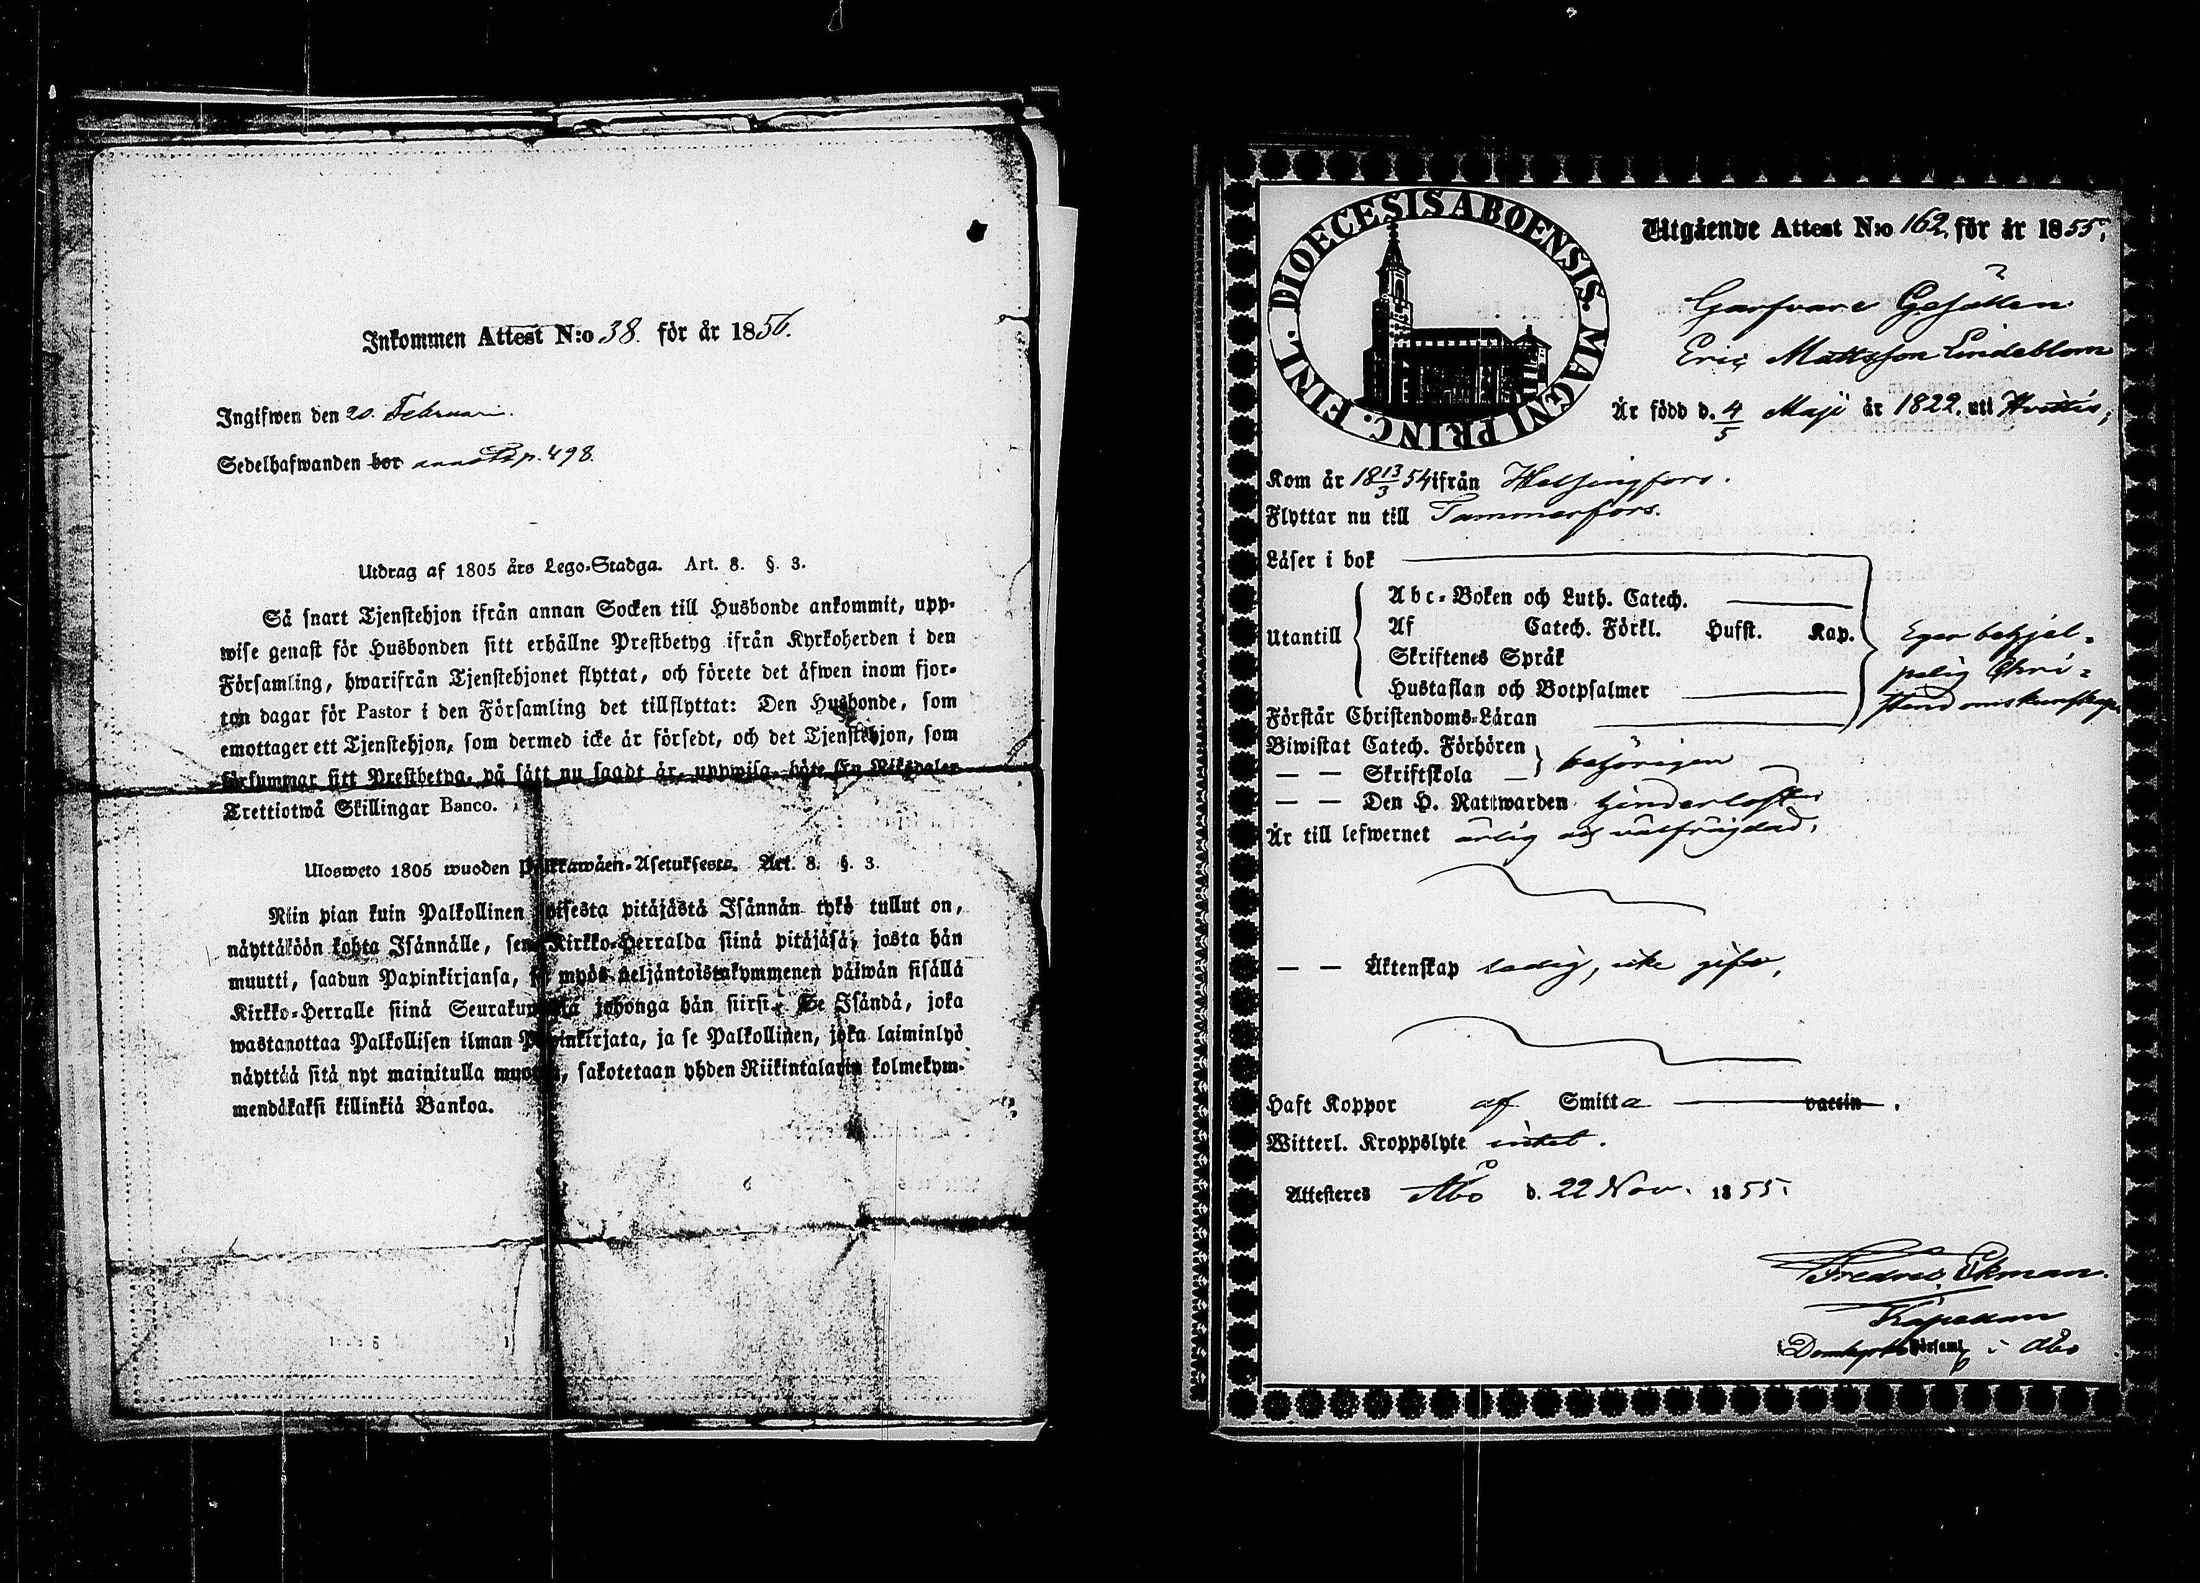 Inkommen Attest N:o 38. för år 1856.
Ingifwen den 20. Februari.
Sedelhafwanden bor anno Pap. 498.
Utdrag af 1805 års Lego-Stadga. Art. 8. §. 3.
Så snart Tjenstehjon ifrån annan Socken till Husbonde ankommit, upp-
wise genast för Husbonden sitt erhållne Prestbetyg ifrån Kyrkoherden i den
Församling, hwarifrån Tjenstehjonet flyttat, och förete det äfwen inom fjor-
ton dagar för Pastor i den Församling det tillflyttat: Den Husbonde, som
emottager ett Tjenstehjon, som dermed icke är försedt, och det Tjenstehjon, som
försummar sitt Prestbetyg, på sätt nu sagdt är, uppwisa, böte En Riksdaler
Trettiotwå Skillingar Banco.
Ulosweto 1805 wuoden Palkkawäen-Asetuksesta. Art. 8. §. 3.
Niin pian kuin Palkollinen toisesta pitäjästä Isännän tykö tullut on,
näyttäköön kohta Isännälle, sen Kirkko-Herralda siinä pitäjäsä, josta hän
muutti, saadun Papinkirjansa, se myös neljäntoistakymmenen päiwän sisällä
Kirkko-Herralle siinä Seurakunnasa johonga hän siirsi. Se Isändä, joka
wastanottaa Palkollisen ilman Papinkirjata, ja se Palkollinen, joka laiminlyö
näyttää sitä nyt mainitulla muotoa, sakotetaan yhden Riikintalarin kolmekym-
mendäkaksi killinkiä Bankoa.
DIOECESIS ABOENSIS. MAGNI PRINC. FINL.
Utgående Attest N:o 162. för år 1855.
Garfvare Gesällen
Eric Mattsson Lindeblom
Är född d. 4/5 Maji år 1822. uti Hvittis,
Kom år 18 13/3 54 ifrån Helsingfors.
Flyttar nu till Tammerfors.
Läser i bok
Utantill
Abc-Boken och Luth. Catech.
Af Catech. Förkl. Hufst. Kap.
Skriftenes Språk
Hustaflan och Botpsalmer
Förstår Christendoms-Läran
Eger behjel-
pelig Chri-
stendomskunskap.
Biwistat Catech. Förhören
— — Skriftskola
behörigen
— — Den H. Nattwarden
Är till lefwernet ärlig och välfrägdad.
— — Äktenskap ledig, icke gift,
Haft Koppor af Smitta vaccin.
Witterl. Kroppslyte intet.
Attesteres Åbo d. 22 Nov. 1855.
Fredric Ekman.
Kapellan
Domkyrko Församl i Åbo